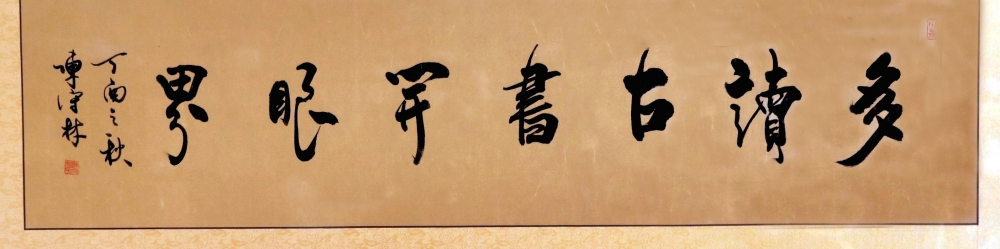 多讀古書開眼界
丁酉之秋
陳澤林